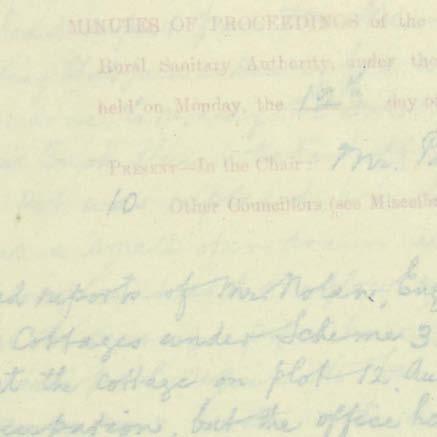 MINUTES OF PROCEEDINGS of the
Rural Sanitary Authority, under the
held on Monday, the 12th day of
PRESENT—In the Chair: Mr.
10 Other Councillors (see
reports of Mr Nolan,
Cottages under Scheme 3
the cottage on plot 12.
but the office